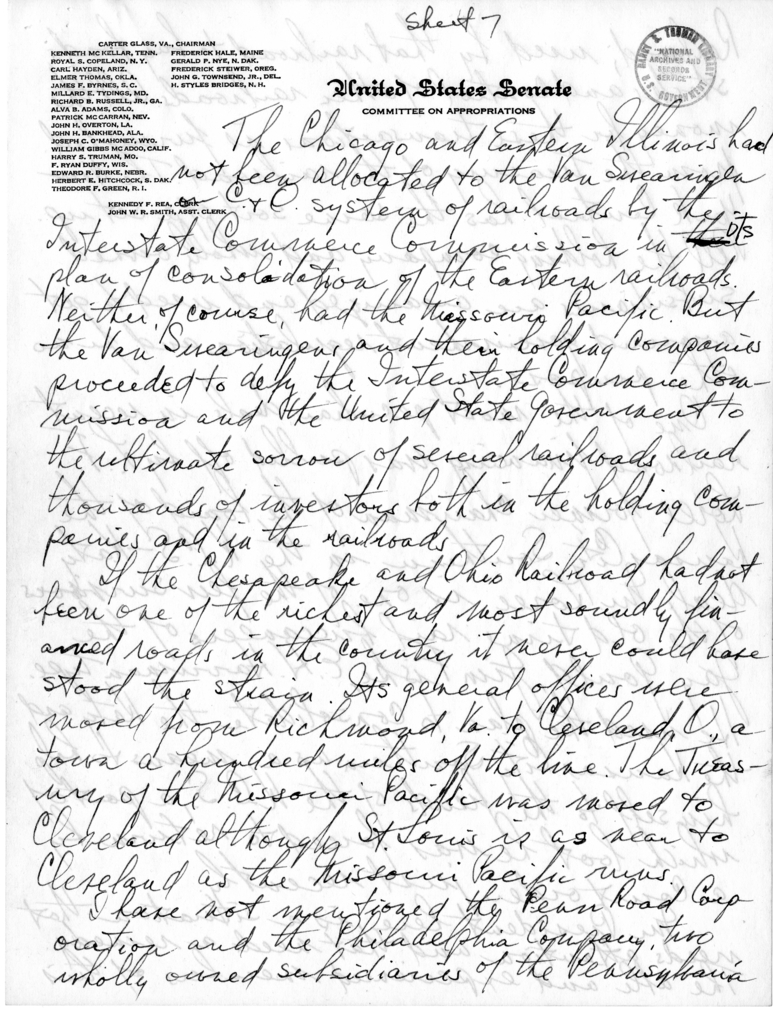 Sheet 7
CARTER GLASS, VA., CHAIRMAN
KENNETH MC KELLAR, TENN. FREDERICK HALE, MAINE
ROYAL S. COPELAND, N. Y. GERALD P. NYE, N. DAK.
CARL HAYDEN, ARIZ. FREDERICK STEIWER, OREG.
ELMER THOMAS, OKLA. JOHN G. TOWNSEND, JR., DEL.
JAMES F. BYRNES, S. C. H. STYLES BRIDGES, N. H.
MILLARD E. TYDINGS, MD.
RICHARD B. RUSSELL, JR., GA.
ALVA B. ADAMS, COLO.
PATRICK MC CARRAN, NEV.
JOHN H. OVERTON, LA.
JOHN H. BANKHEAD, ALA.
JOSEPH C. O'MAHONEY, WYO.
WILLIAM GIBBS MC ADOO, CALIF.
HARRY S. TRUMAN, MO.
F. RYAN DUFFY, WIS.
EDWARD R. BURKE, NEBR.
HERBERT E. HITCHCOCK, S. DAK.
THEODORE F. GREEN, R. I.
KENNEDY F. REA, CLERK
JOHN W. R. SMITH, ASST. CLERK
United States Senate
COMMITTEE ON APPROPRIATIONS
HARRY S. TRUMAN LIBRARY
"NATIONAL
ARCHIVES AND
RECORDS
SERVICE"
U.S. GOVERNMENT
The Chicago and Eastern Illinois had
not been allocated to the Van Swearingen
or C. & O. system of railroads by the
Interstate Commerce Commission in the its
plan of consolidation of the Eastern railroads.
Neither, of course, had the Missouri Pacific. But
the Van Swearingens and their holding companies
proceeded to defy the Interstate Commerce Com-
mission and the United State Government to
the ultimate sorrow of several railroads and
thousands of investors both in the holding com-
panies and in the railroads
If the Chesapeake and Ohio Railroad had not
been one of the richest and most soundly fin-
anced roads in the country it never could have
stood the strain. Its general offices were
moved from Richmond, Va. to Cleveland, O., a
town a hundred miles off the line. The Treas-
ury of the Missouri Pacific was moved to
Cleveland although St. Louis is as near to
Cleveland as the Missouri Pacific runs.
I have not mentioned the Penn Road Corp
oration and the Philadelphia Company, two
wholly owned subsidiaries of the Pennsylvania